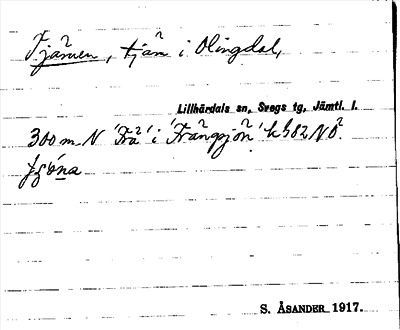 Tjärnen, tjän i Olingdal,
Lillhärdals sn, Svegs tg, Jämtl. l.
300 m N 'Trå' i 'Trångsjön' k 582 NÖ.
S. ÅSANDER 1917.